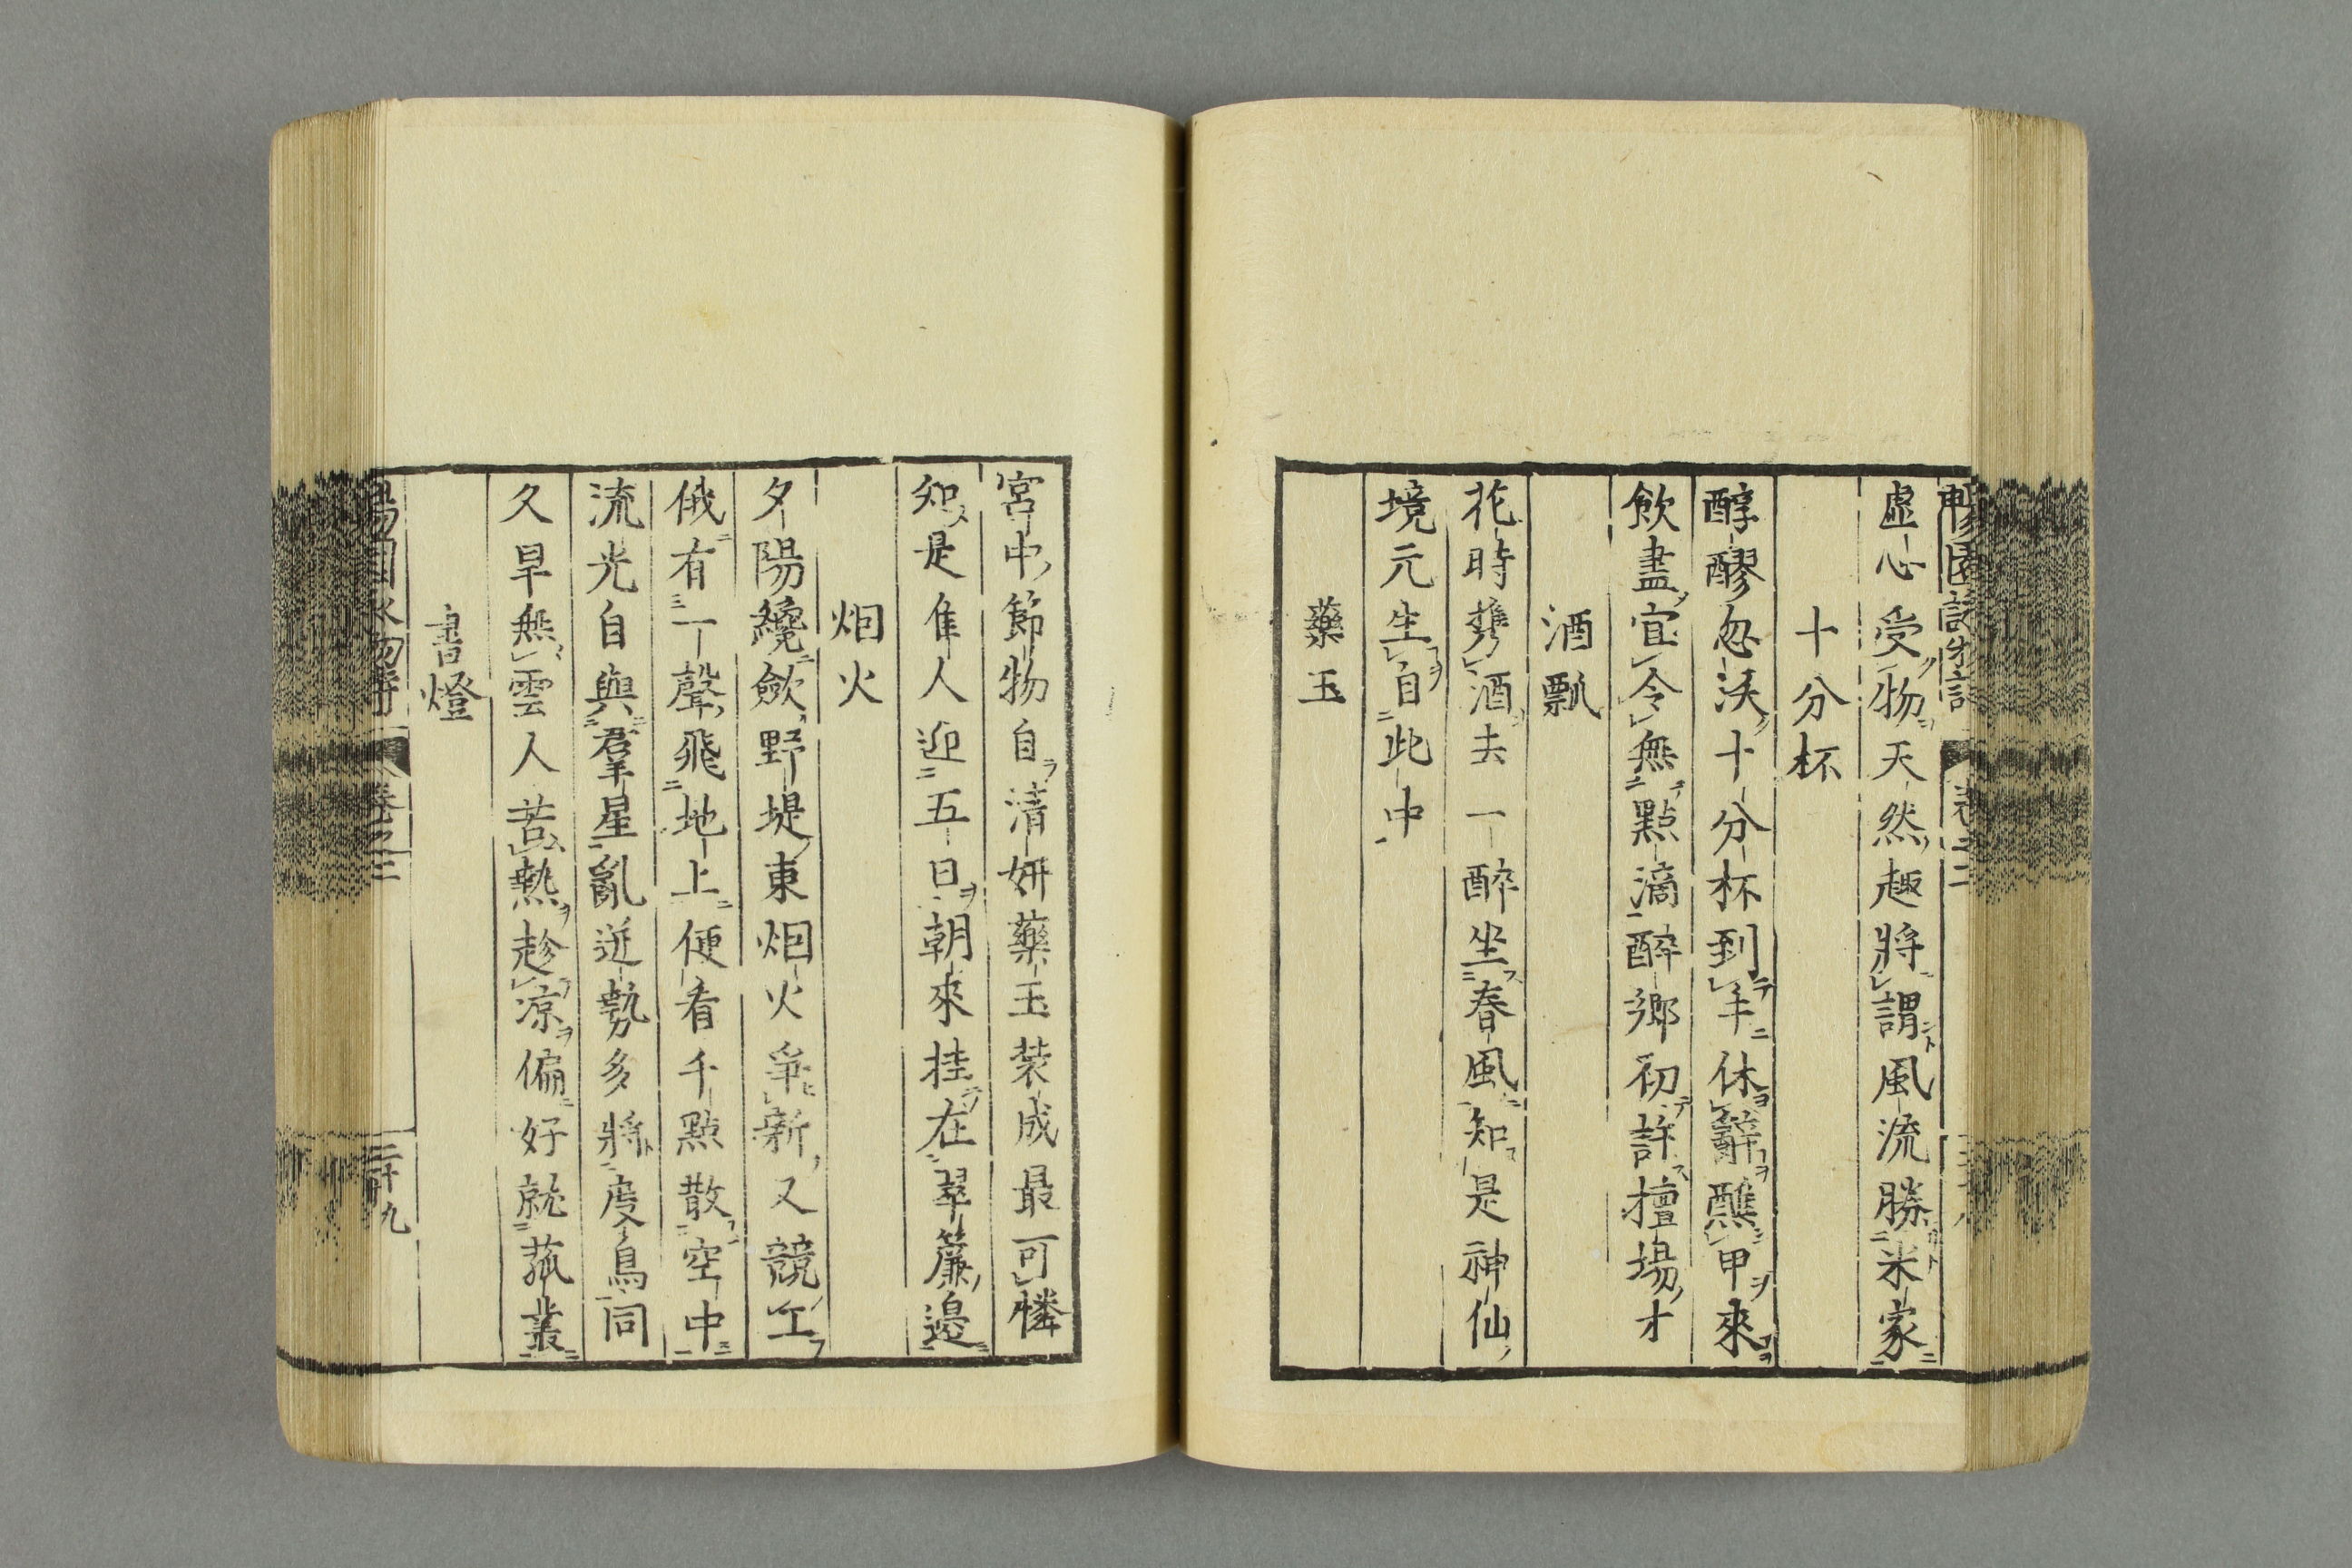 虛心受物天然趣將謂風流勝米家
十分杯
醇醪忽沃十分杯到手休辭醮甲來
飲盡宜令無點滴醉鄉初許擅場才
酒瓢
花時携酒去一醉坐春風知是神仙
境元生自此中
藥玉
宮中節物自清妍藥玉裝成最可憐
知是隹人迎五日朝來挂在翠簾邊
烟火
夕陽纔斂野堤東烟火爭新又競工
俄有一聲飛地上便看千點散空中
流光自與羣星亂逆勢多將度鳥同
久旱無雲人苦熱趁凉偏好就菰叢
書燈
卷之二
二十九